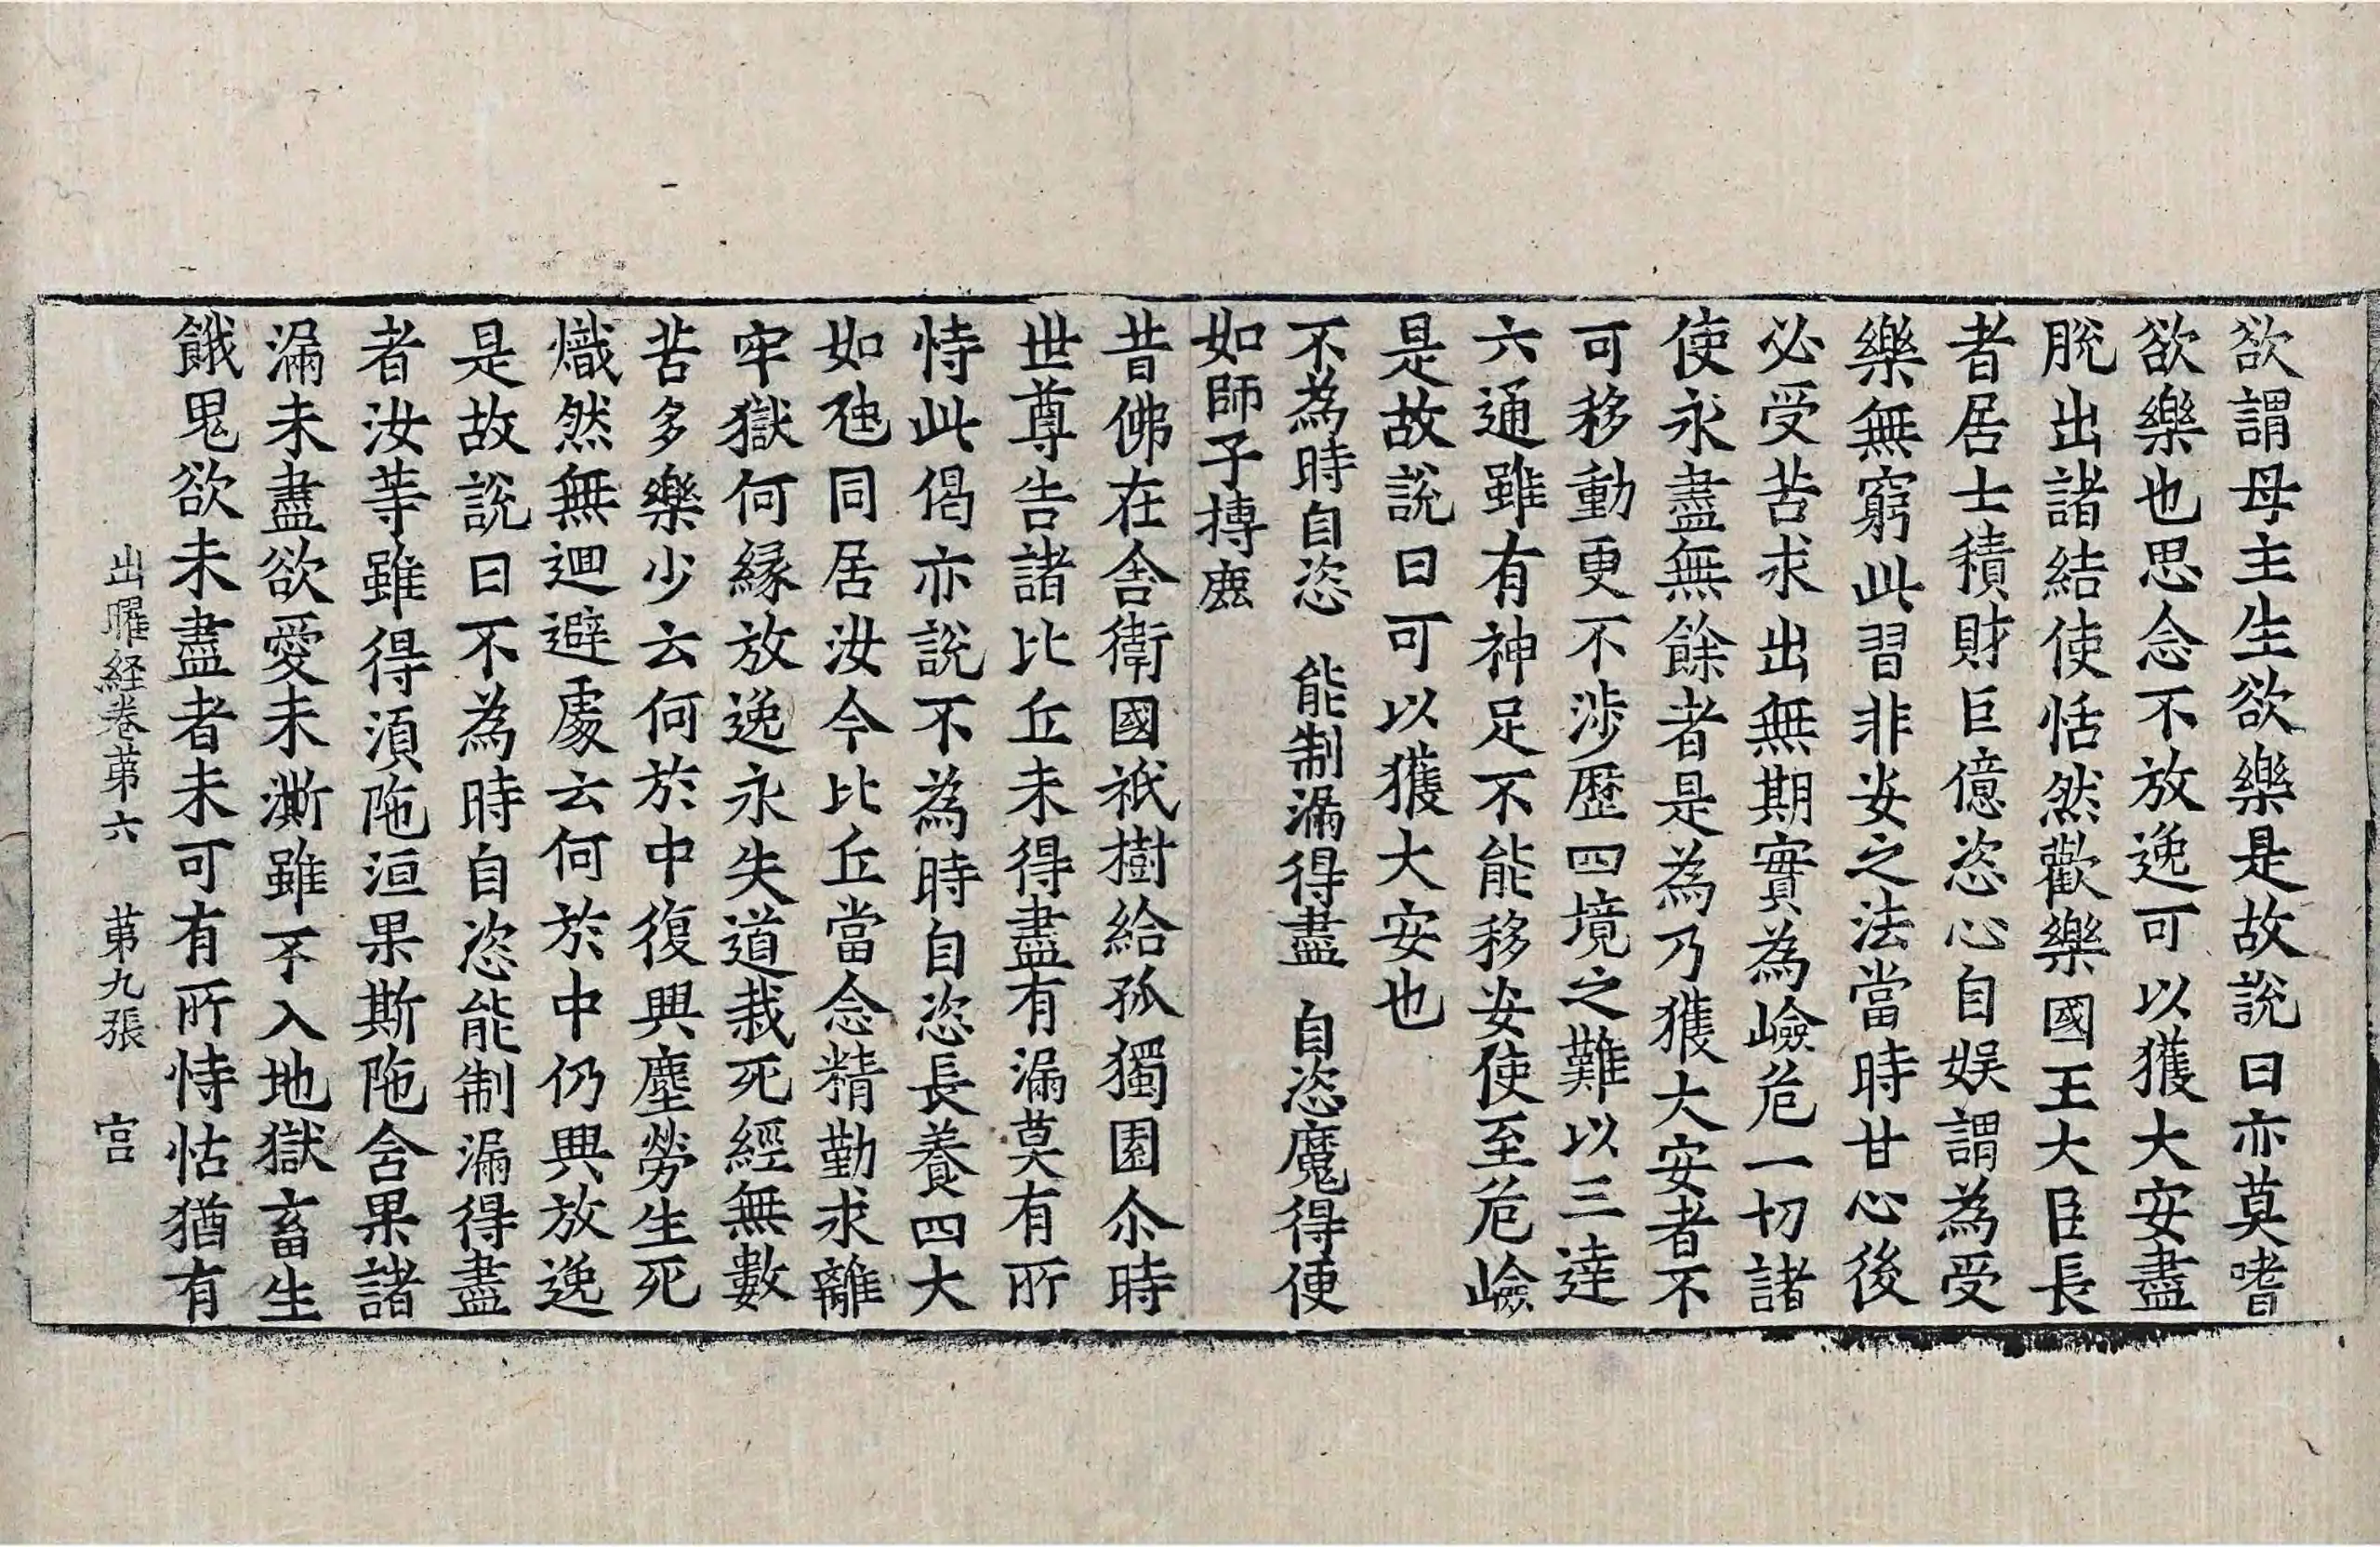 欲謂母主生欲樂是故說曰亦莫嗜
欲樂也思念不放逸可以獲大安盡
脫出諸結使恬然歡樂國王大臣長
者居士積財巨億恣心自娛謂為受
樂無窮此習非安之法當時甘心後
必受苦求出無期實為嶮危一切諸
使永盡無餘者是為乃獲大安者不
可移動更不涉歷四境之難以三達
六通雖有神足不能移安使至危嶮
是故說曰可以獲大安也
不為時自恣　能制漏得盡　自恣魔得便
如師子搏鹿
昔佛在舍衛國祇樹給孤獨園尒時
世尊告諸比丘未得盡有漏莫有所
恃此偈亦說不為時自恣長養四大
如虵同居汝今比丘當念精勤求離
牢獄何緣放逸永失道栽死經無數
苦多樂少云何於中復興塵勞生死
熾然無迴避處云何於中仍興放逸
是故說曰不為時自恣能制漏得盡
者汝等雖得湏陁洹果斯陁含果諸
漏未盡欲愛未澌雖不入地獄畜生
餓鬼欲未盡者未可有所恃怙猶有
出曜経卷苐六　苐九張　宫